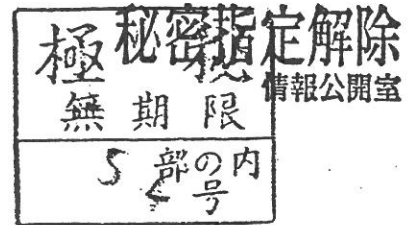 秘密指定解除
情報公開室
極
無期限
5部の内
号